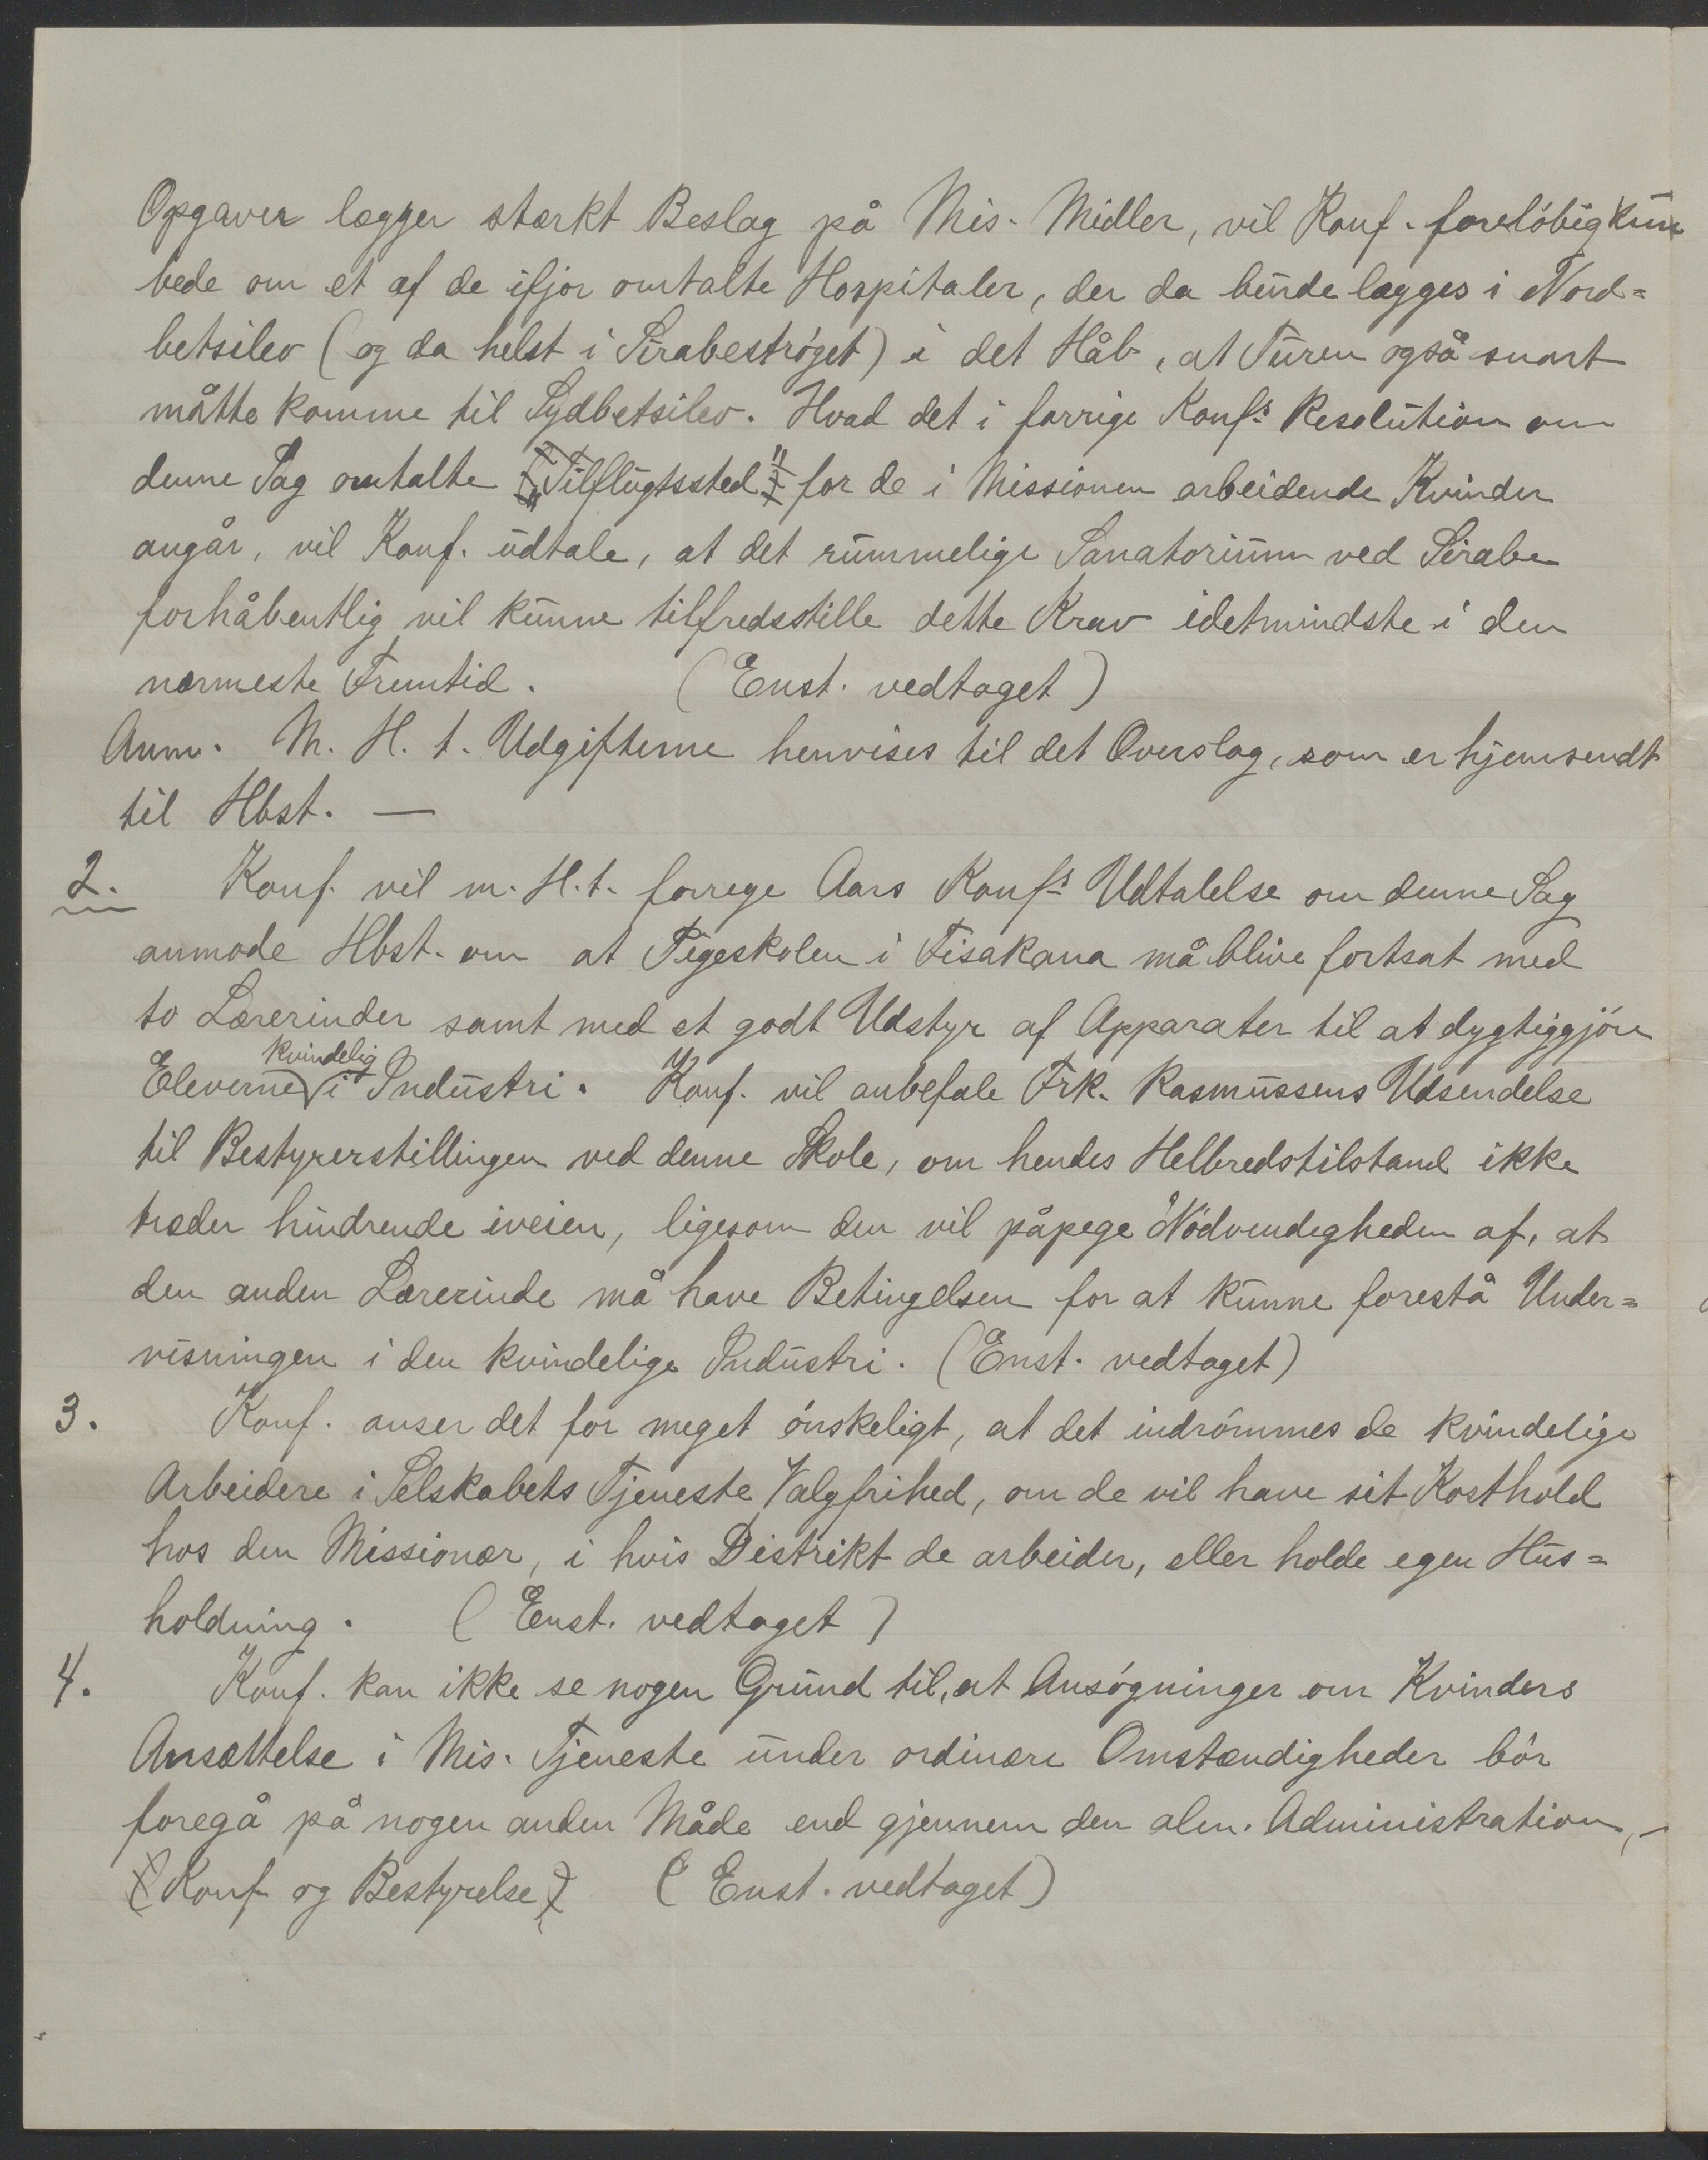 Opgaver lægger stærkt Beslag på Mis. Midler, vil Konf. foreløbig kun
bede om et af de ifjor omtalte Hospitaler, der da burde lægges i Nord=
betsileo (og da helst i Sirabestrøget) i det Håb, at Turen også snart
måtte komme til Sydbetsileo. Hvad det i forrige Konfs Resolution om
denne Sag omtalte "Tilflugtssted" for de i Missionen arbeidende Kvinder
angår, vil Konf. udtale, at det rummelige Sanatorium ved Sirabe
forhåbentlig vil kunne tilfredsstille dette Krav idetmindste i den
nærmeste Fremtid. (Enst. vedtaget)
Anm. M. H. t. Udgifterne henvises til det Overslag, som er hjemsendt
til Hbst. —
2. Konf. vil m. H. t. forrige Aars Konfs Udtalelse om denne Sag
anmode Hbst. om at Pigeskolen i Fisakana må blive fortsat med
to Lærerinder samt med et godt Udstyr af Apparater til at dygtiggjøre
Eleverne i kvindelig Industri. Konf. vil anbefale Frk. Rasmussens Udsendelse
til Bestyrerstillingen ved denne Skole, om hendes Helbredstilstand ikke
træder hindrende iveien, ligesom den vil påpege Nødvendigheden af, at
den anden Lærerinde må have Betingelsen for at kunne forestå Under=
visningen i den kvindelige Industri. (Enst. vedtaget)
3. Konf. anser det for meget ønskeligt, at det indrømmes de kvindelige
Arbeidere i Selskabets Tjeneste Valgfrihed, om de vil have sit Kosthold
hos den Missionær, i hvis Distrikt de arbeider, eller holde egen Hus=
holdning. (Enst. vedtaget)
4. Konf. kan ikke se nogen Grund til, at Ansøgninger om Kvinders
Ansættelse i Mis. Tjeneste under ordinære Omstændigheder bør
foregå på nogen anden Måde end gjennem den alm. Administration, -
(Konf og Bestyrelse) (Enst. vedtaget)